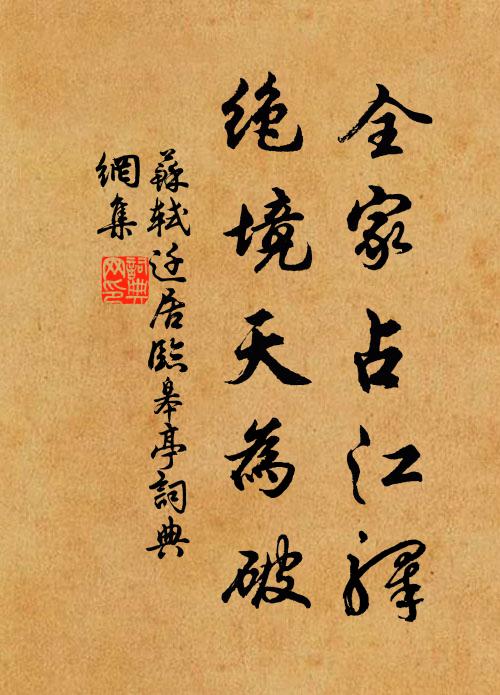 全家占江驛
絶境天為破
蘇軾迁居臨皋亭詞典
網集
詞典網印